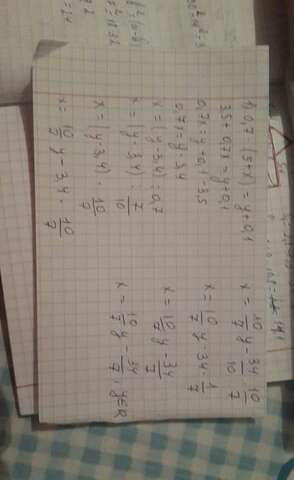 1) 0,7 (5+x) = y+0,1
3,5 + 0,7x = y+0,1
0,7x = y+0,1-3,5
0,7x = y-3,4
x = (y-3,4) : 0,7
x = (y-3,4) : 7/10
x = (y-3,4) · 10/7
x = 10/7 y - 3,4 · 10/7
x = 10/7 y - 34/10 · 10/7
x = 10/7 y - 34 · 1/7
x = 10/7 y - 34/7
x = 10/7 y - 34/7, y∈R